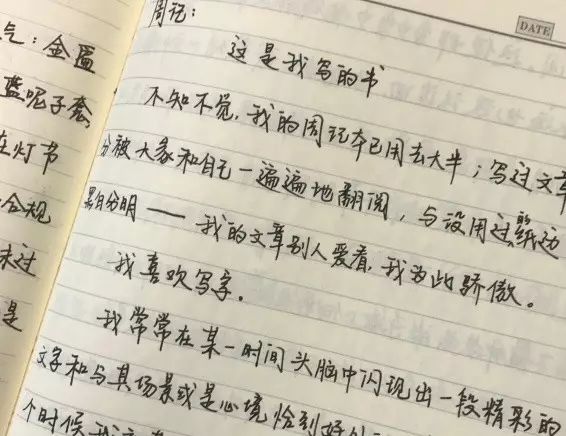 DATE
周记：
这是我写的书
不知不觉，我的周记本已用去大半；写过文章
分被大家和自己一遍遍地翻阅，与没用过纸边
黑白分明——我的文章别人爱看，我为此骄傲。
我喜欢写字。
我常常在某一时间头脑中闪现出一段精彩的
文字和与其场景或是心境恰到好处
个时候我
气：金
蓝呢子套
在灯节
合规
未过
是